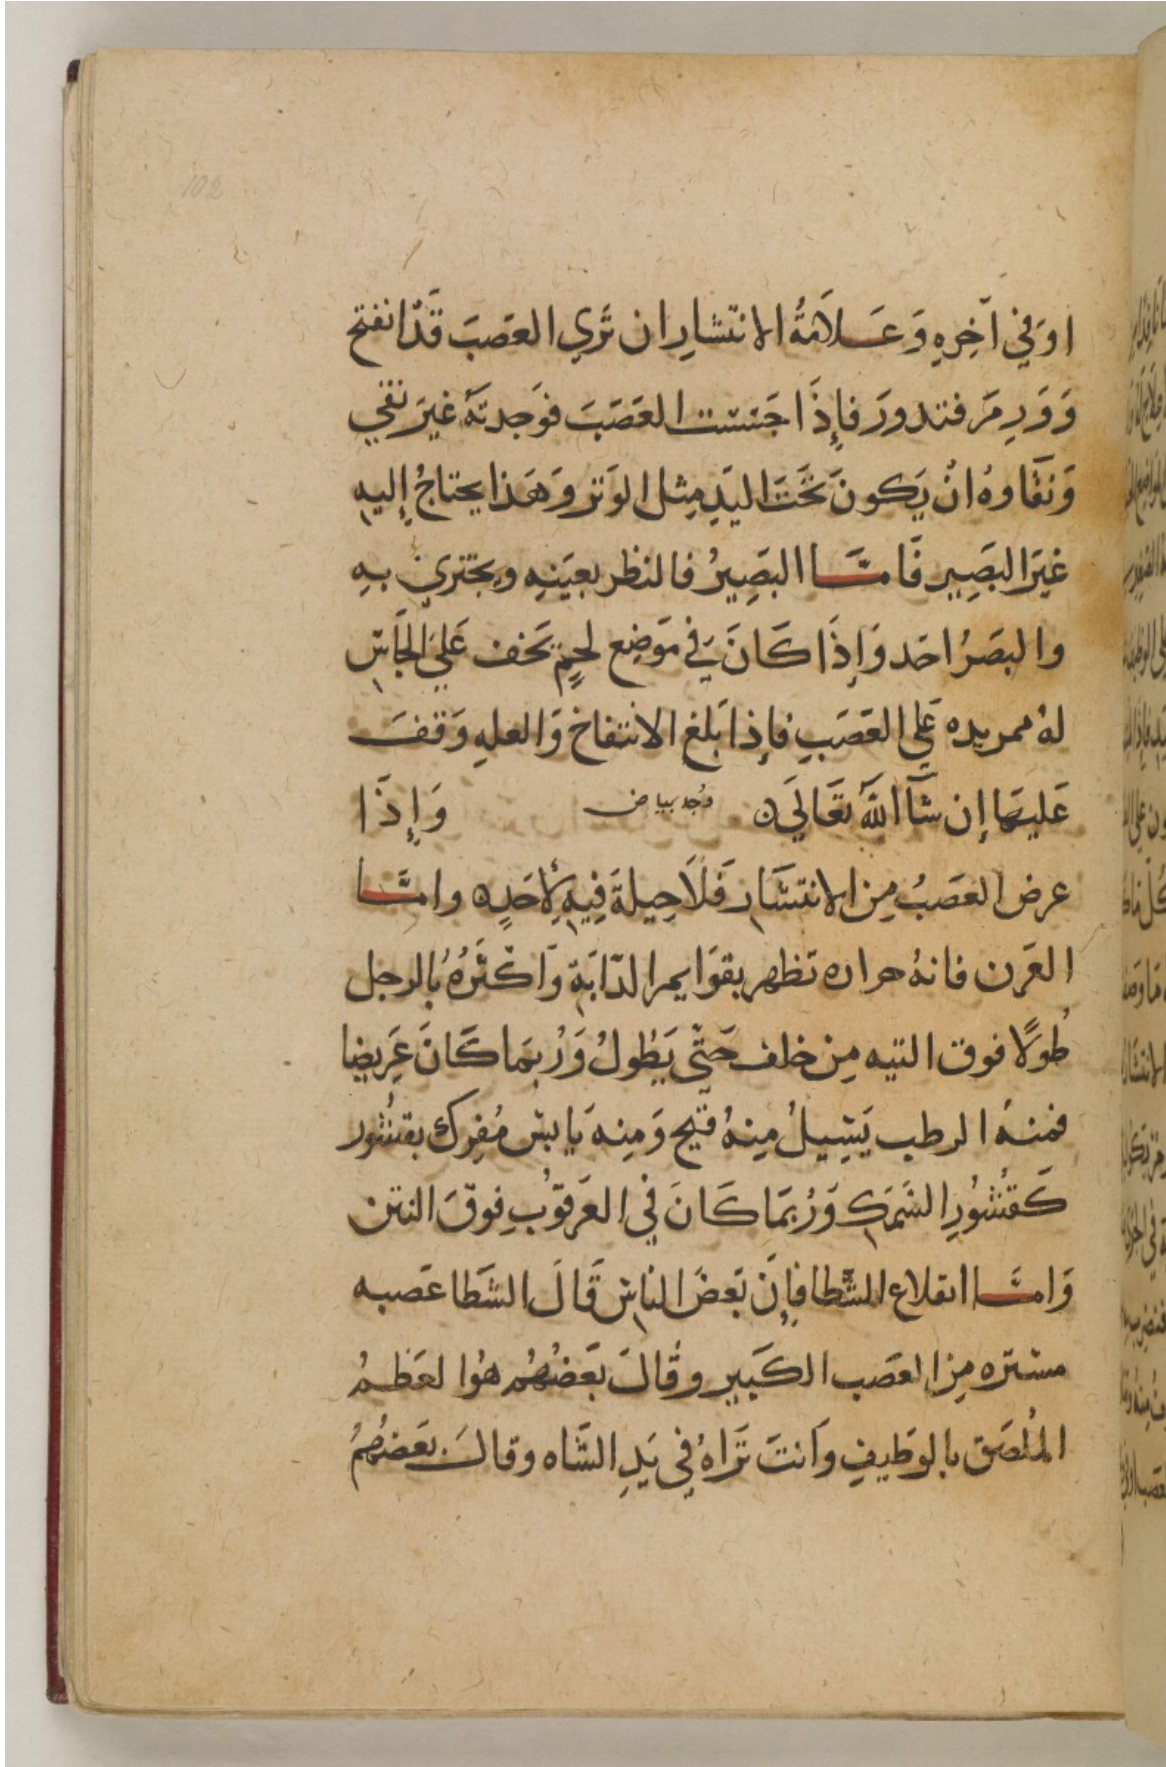 اوَ فِي آخِرِهِ وَعَلَامَةُ الانتشارِ ان تَرَي العصَبَ قَدْ انفتح
وَوَرِمَ فتدورَ فإِذَا جَسَسْت العَصَبَ فوَجدتَهُ غيرَ نقي
وَنَقَاوهُ انْ يَكونَ تَحْتَ اليَدِ مِثل الوَتر وَهَذا يحتاجُ إِليهِ
غيَر البَصِيرِ فَامَّا البَصِيرُ فالنظر بعيَنِهِ ويجتزي بهِ
والبَصَرُ احَد وَإِذَا كَانَ فِي مَوَضِع لحمٍ يَخف عَلي الجَاسِّ
لهُ ممر يده عَلي العَصَبِ فإِذا بَلغ الانتفاخ وَالعلهِ وَقفَ
عَليهَا إِن شآَ اللهُ تعَالَي ٥ وُجد بياض وَإِذَا
عرض العَصَبُ مِن الانتشَارِ فَلاَ حِيلةَ فِيهِ لِأَحَدٍ ٥ وامَّا
العَرَن فانهُ حراره تظهر بقوَايم الدّابَةِ وَاكْثَرُهُ بالرجل
طُولًا فوق التيه مِن خلف حَتَّي يَطُولُ وَرُبمَا كَانَ عَرِيضا
فمنهُ الرطب يَسِيلُ مِنهُ قيح وَمِنه يَابس مُفرك بقشُور
كَقشُورِ السَمَكِ وَرُبَمَا كَانَ فِي العَرقوُبِ فوقَ الثنن
وَامَّا انقلاع الشَّظا فإِنَ بَعضَ الناسِ قَالَ الشظا عَصبه
مستتره مِن العَصَب الكَبير وقَالَ بَعَضُهُم هُوا لعَظمُ
المُلصَق بالوَظيفِ وَانتَ تَراهُ فِي يَدِ الشَاه وقالَ بعَضُهُمُ
102